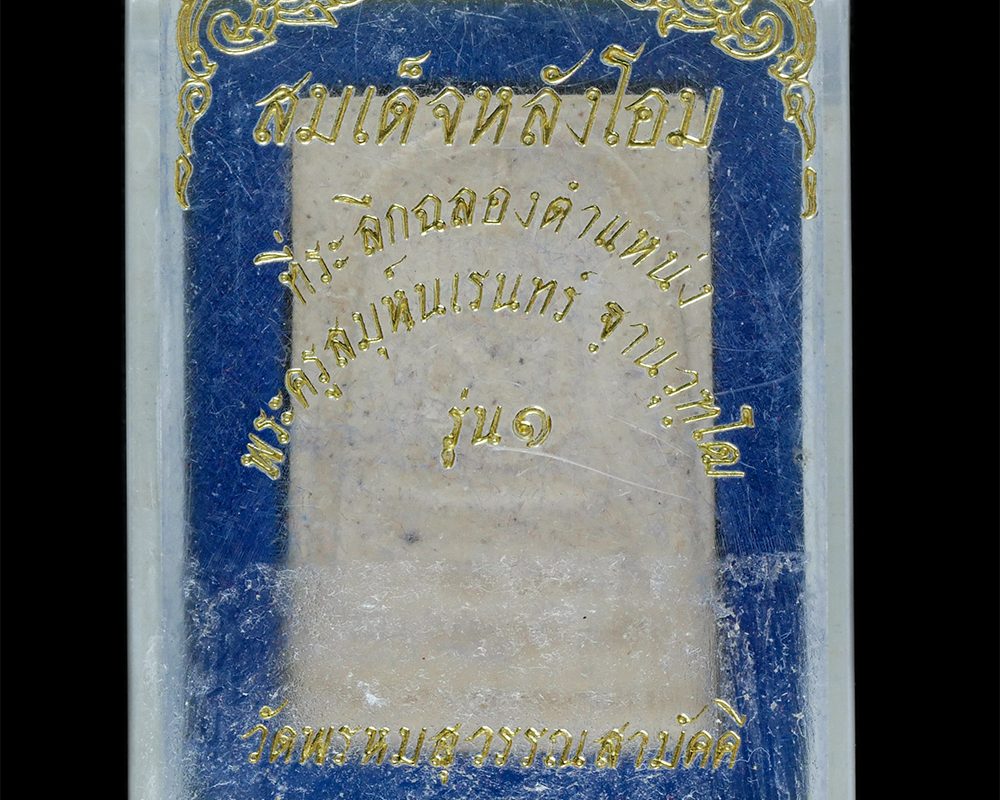 สมเด็จหลังโอม
ที่ระลึกฉลองตำแหน่ง
พระครูสมุห์นเรนทร์ ฐานวุฑฺโฒ
รุ่น๑
วัดพรหมสุวรรณสามัคคี